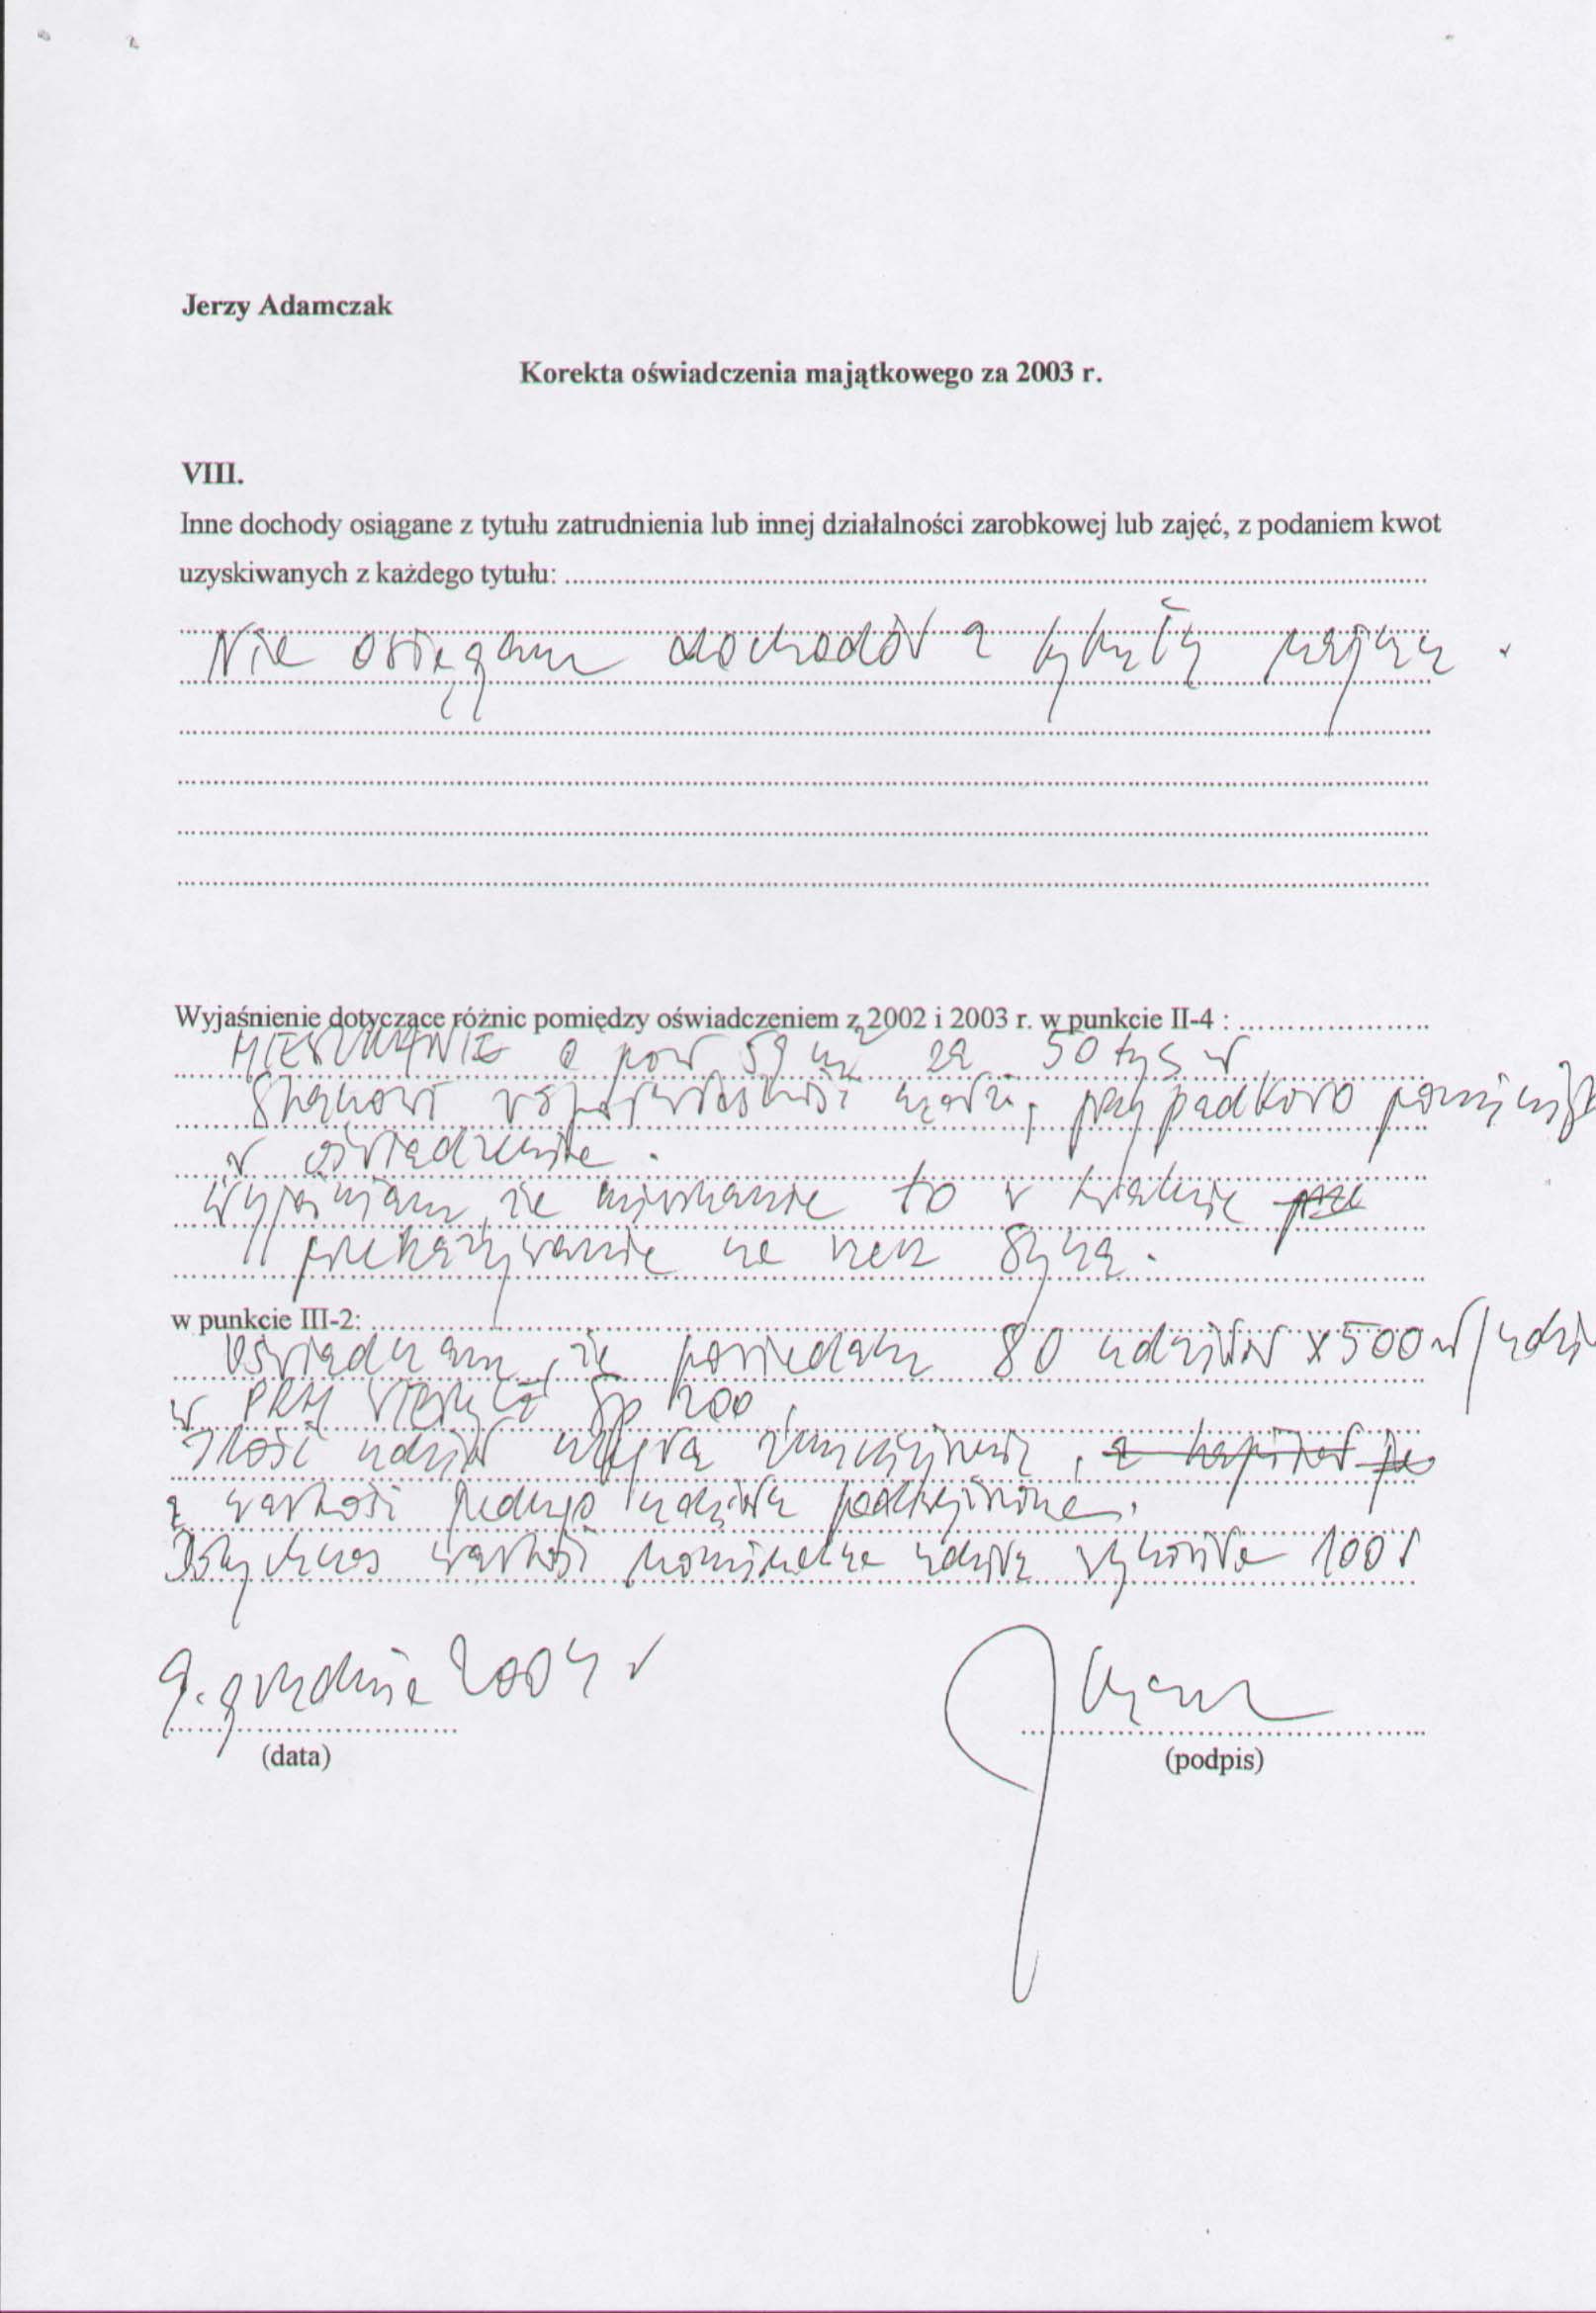 Jerzy Adamczak
Korekta oświadczenia majątkowego za 2003 r.
VIII.
Inne dochody osiągane z tytułu zatrudnienia lub innej działalności zarobkowej lub zajęć, z podaniem kwot
uzyskiwanych z każdego tytułu:
Nie osiągam dochodów z tytułu
Wyjaśnienie dotyczące różnic pomiędzy oświadczeniem z 2002 i 2003 r. w punkcie II-4 :
MIESZKANIE o pow 59 m2 za 50 tys zł
Stanowi współwłasność przypadkowo
w oświadczenie.
Wyjaśniam, że mieszkanie to w trakcie
przekazywanie na rzecz syna.
w punkcie III-2:
Oświadczam, że posiadam 80 udziałów x 500 zł/
w
Ilość udziałów
a wartość jednego udziału podwyższona.
Dotychczas wartość nominalna udziału wynosiła 100
9. grudnia 2004 r
(data)
(podpis)